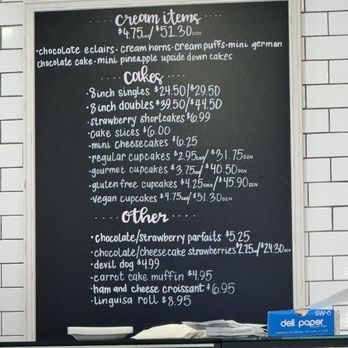 cream items
$4.75ea/$51.30DZN
·chocolate eclairs·cream horns·cream puffs·mini german
chocolate cake·mini pineapple upside down cakes
cakes
·8 inch singles $24.50/$29.50
·8 inch doubles $39.50/$44.50
·strawberry shortcakes $6.99
·cake slices $6.00
·mini cheesecakes $6.25
·regular cupcakes $2.95ea/$31.75DZN
·gourmet cupcakes $3.75ea/$40.50DZN
·gluten free cupcakes $4.25each/$45.90DZN
·vegan cupcakes $4.75ea/$51.30DZN
other
·chocolate/strawberry parfaits $5.25
·chocolate/cheesecake strawberries $2.25ea/$24.30DZN
·devil dog $4.99
·carrot cake muffin $4.95
·ham and cheese croissant $6.95
·linguisa roll $8.95
SW-6
deli paper